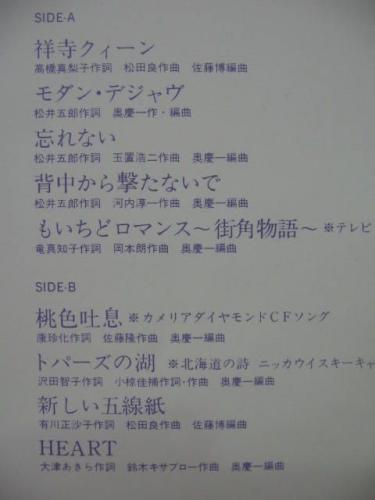 SIDE-A
祥寺クィーン
高橋真梨子作詞 松田良作曲 佐藤博編曲
モダン・デジャヴ
松井五郎作詞 奥慶一作・編曲
忘れない
松井五郎作詞 玉置浩二作曲 奥慶一編曲
背中から撃たないで
松井五郎作詞 河内淳一作曲 奥慶一編曲
もいちどロマンス〜街角物語〜 ※テレビ
竜真知子作詞 岡本朗作曲 奥慶一編曲
SIDE-B
桃色吐息 ※カメリアダイヤモンドCFソング
康珍化作詞 佐藤隆作曲 奥慶一編曲
トパーズの湖 ※北海道の詩 ニッカウイスキーキャ
沢田智子作詞 小椋佳補作詞・作曲 奥慶一編曲
新しい五線紙
有川正沙子作詞 松田良作曲 佐藤博編曲
HEART
大津あきら作詞 鈴木キサブロー作曲 奥慶一編曲